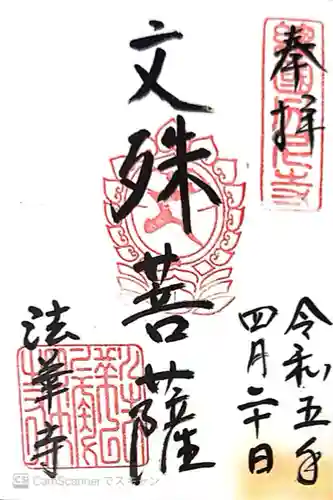 奉拝
令和五年
四月二十日
文殊菩薩
法華寺
CamScannerでスキャン